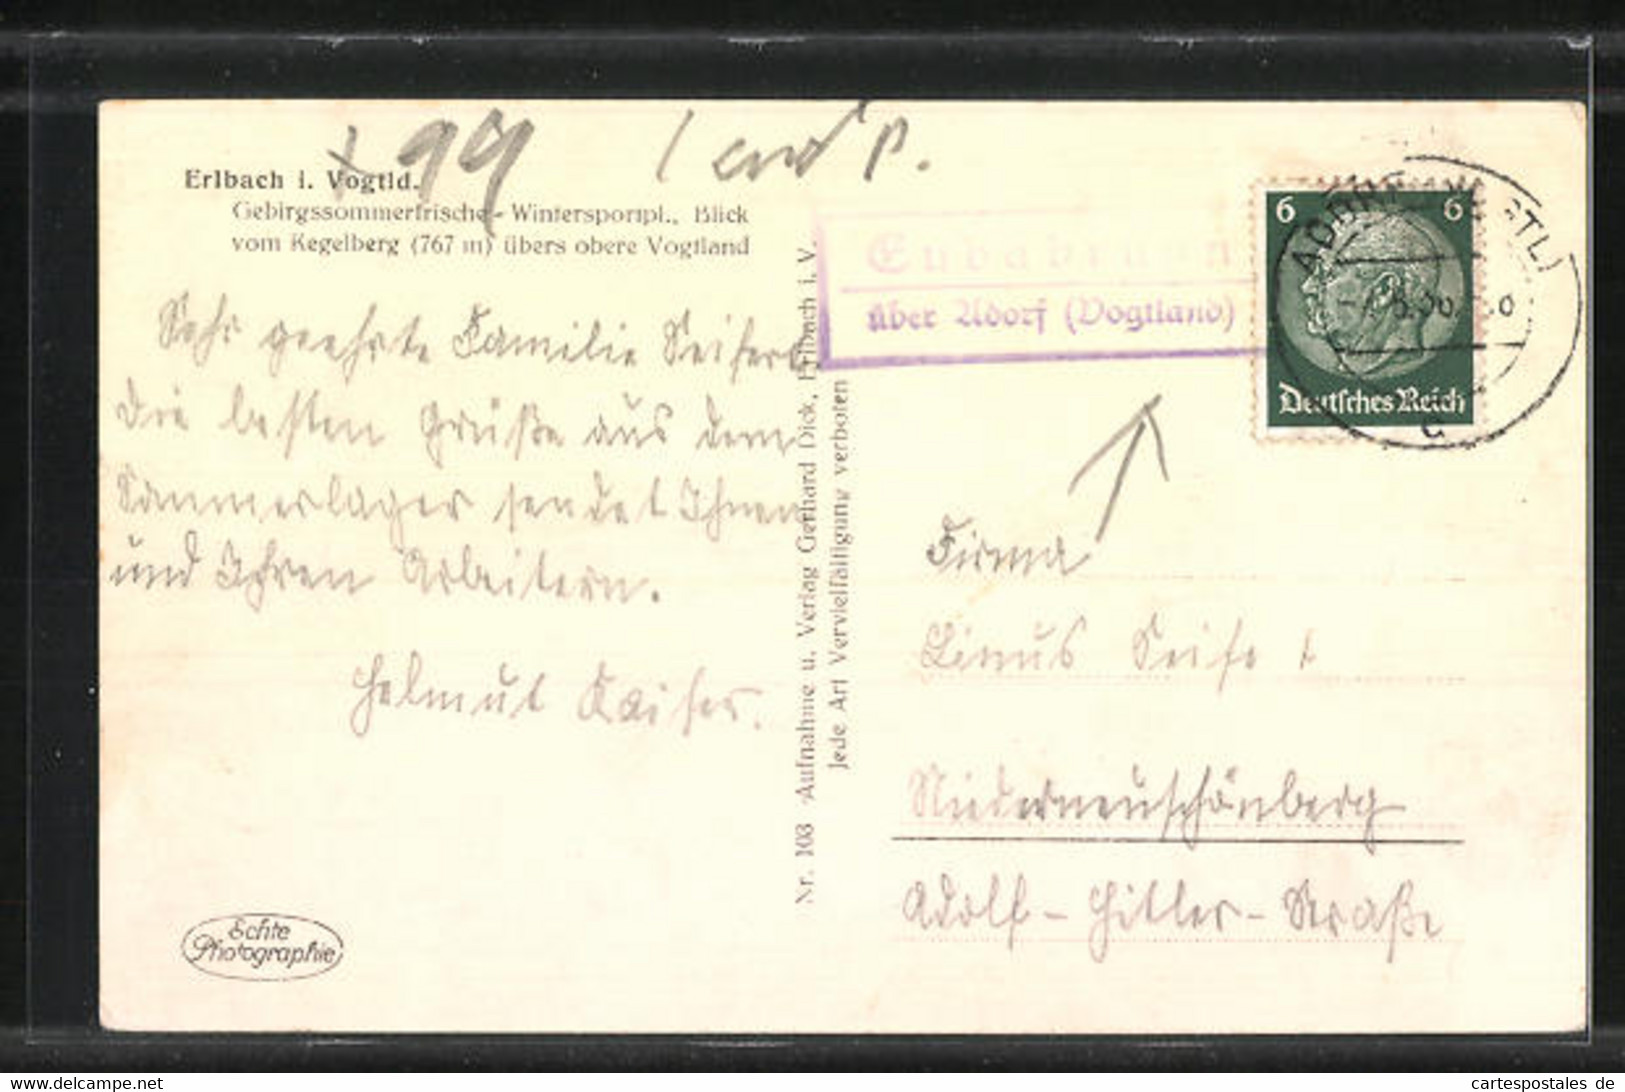 Erlbach i. Vogtld.
Gebirgssommerfrische - Wintersportpl., Blick
vom Kegelberg (767 m) übers obere Vogtland
Sehr geehrte Familie Seifert
Die besten Grüße aus dem
Sommerlager sendet Ihnen
und Ihren Arbeitern.
Helmut Kaiser.
Echte
Photographie
Nr. 103 Aufnahme u. Verlag Gerhard Dick, Erlbach i. V.
Jede Art Vervielfältigung verboten
Eubabrunn
über Adorf (Vogtland)
6 6
Deutsches Reich
Firma
Linus Seifert
Niederneuschönberg
Adolf-Hitler-Straße
cartespostales de